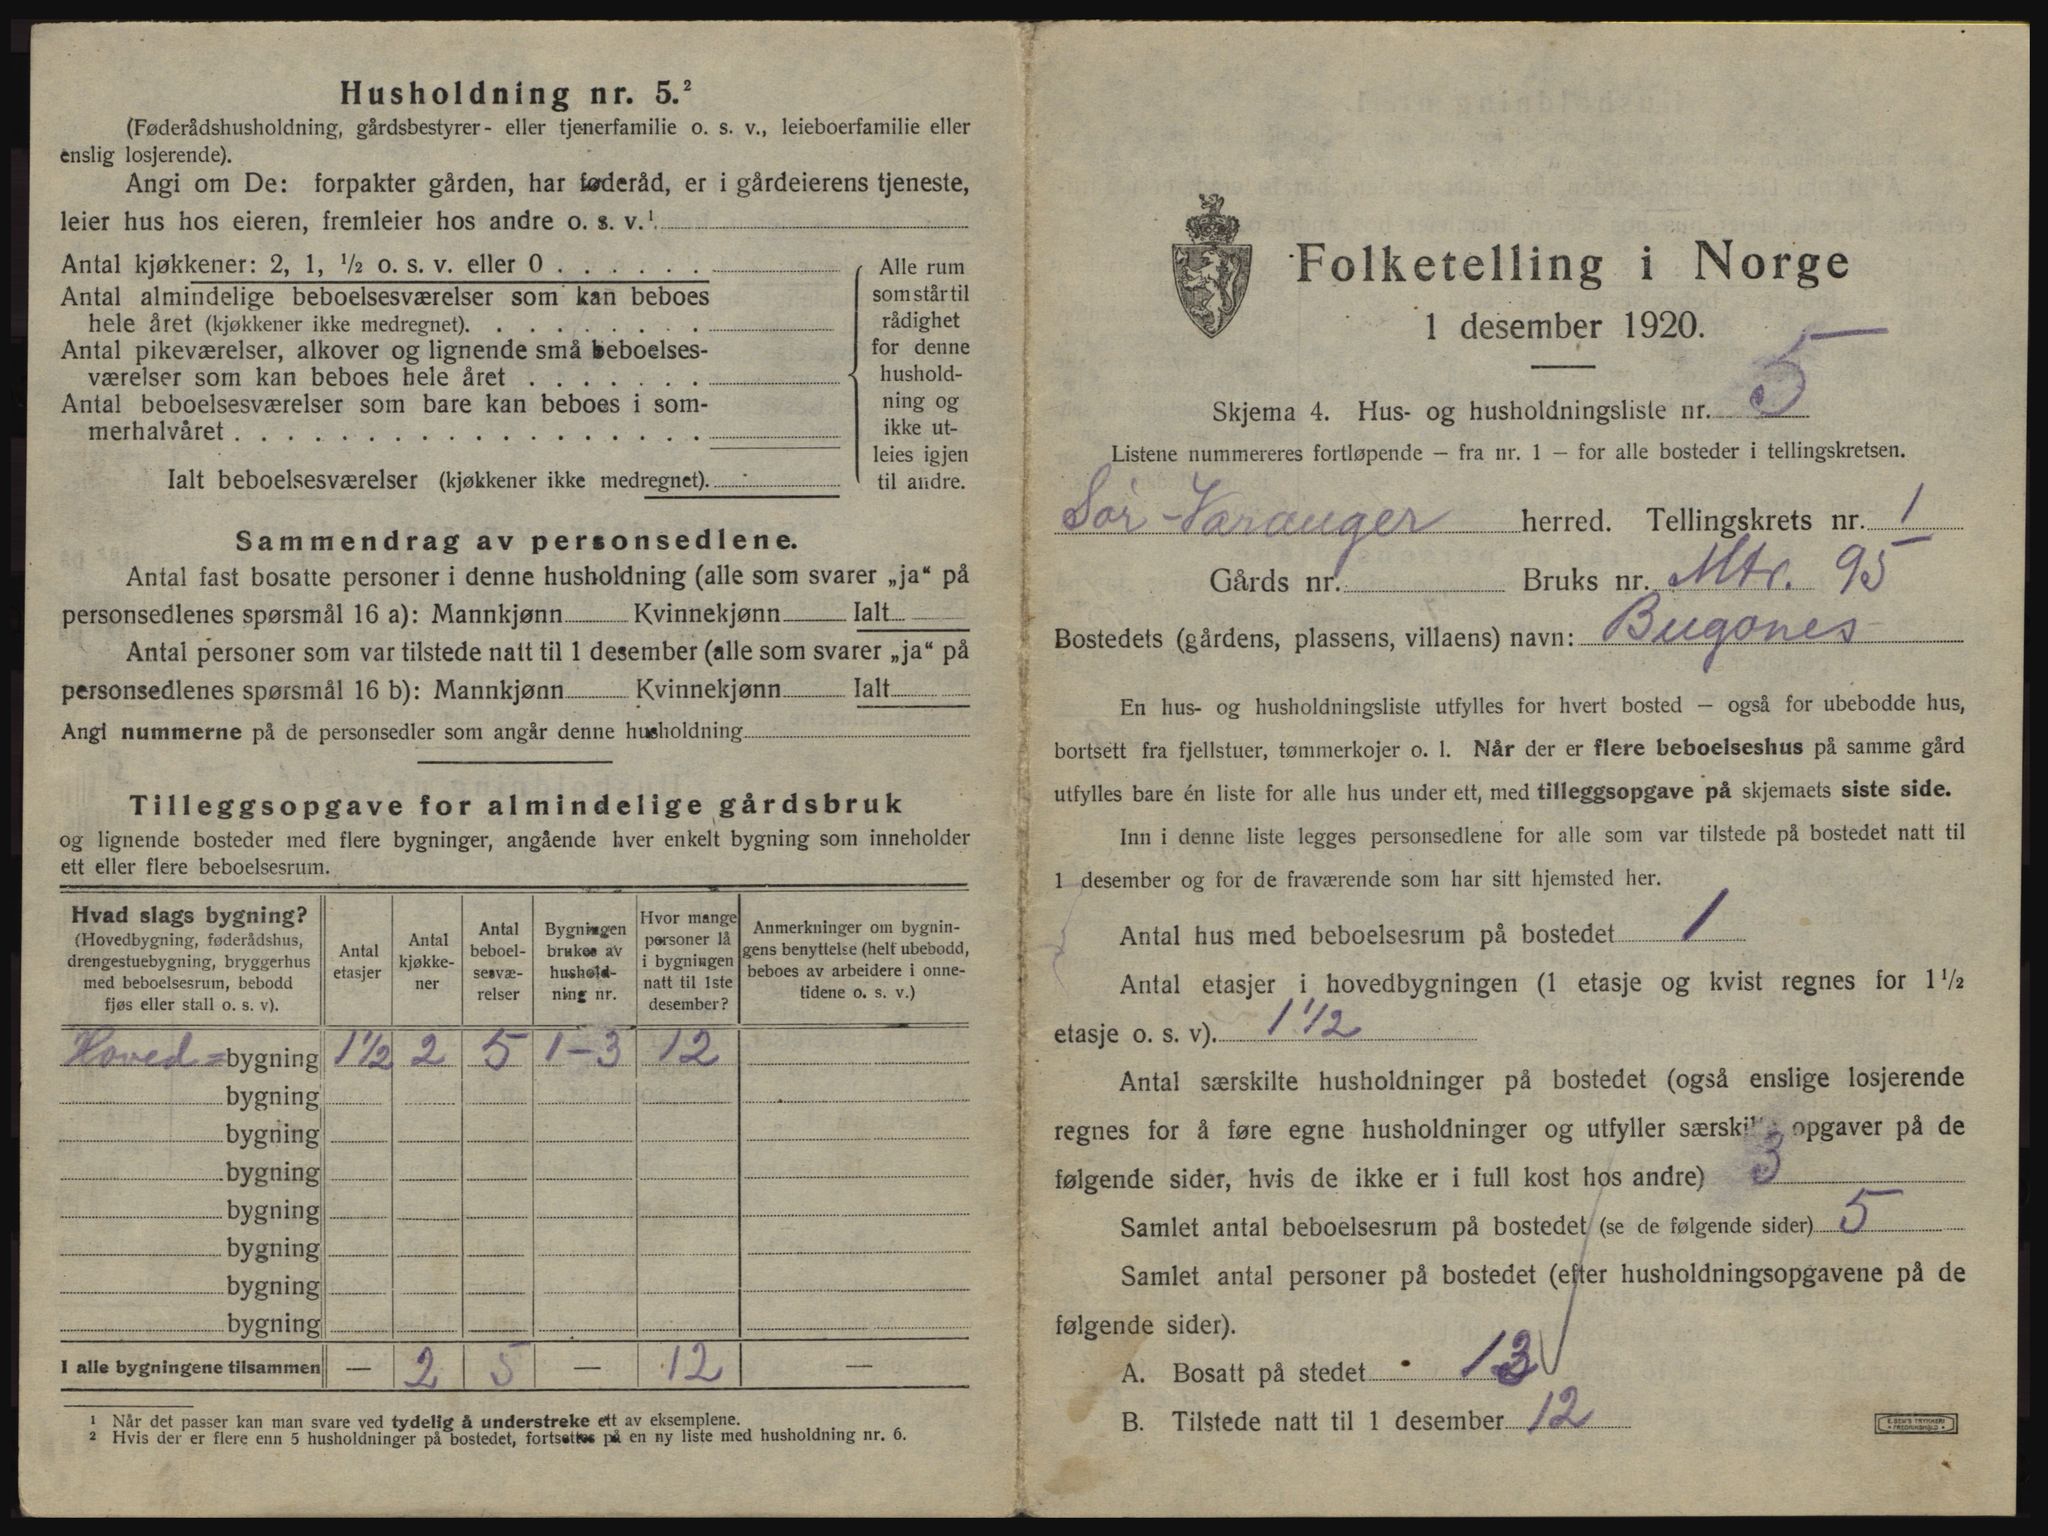 Husholdning nr. 5.²
(Føderådshusholdning, gårdsbestyrer- eller tjenerfamilie o. s. v., leieboerfamilie eller
enslig losjerende).
Angi om De: forpakter gården, har føderåd, er i gårdeierens tjeneste,
leier hus hos eieren, fremleier hos andre o. s. v.¹
Antal kjøkkener: 2, 1, ¹/₂ o. s. v. eller 0 . . . . . .
Antal almindelige beboelsesværelser som kan beboes
hele året (kjøkkener ikke medregnet). . . . . . . . .
Antal pikeværelser, alkover og lignende små beboelses-
værelser som kan beboes hele året . . . . . . .
Antal beboelsesværelser som bare kan beboes i som-
merhalvåret . . . . . . . . . . . . . . . . . .
Ialt beboelsesværelser (kjøkkener ikke medregnet).
Alle rum
som står til
rådighet
for denne
hushold-
ning og
ikke ut-
leies igjen
til andre.
Sammendrag av personsedlene.
Antal fast bosatte personer i denne husholdning (alle som svarer „ja“ på
personsedlenes spørsmål 16 a): Mannkjønn Kvinnekjønn Ialt
Antal personer som var tilstede natt til 1 desember (alle som svarer „ja“ på
personsedlenes spørsmål 16 b): Mannkjønn Kvinnekjønn Ialt
Angi nummerne på de personsedler som angår denne husholdning
Tilleggsopgave for almindelige gårdsbruk
og lignende bosteder med flere bygninger, angående hver enkelt bygning som inneholder
ett eller flere beboelsesrum.
Hvad slags bygning?
(Hovedbygning, føderådshus,
drengestuebygning, bryggerhus
med beboelsesrum, bebodd
fjøs eller stall o. s. v).
Antal
etasjer
Antal
kjøkke-
ner
Antal
beboel-
sesvæ-
relser
Bygningen
brukes av
hushold-
ning nr.
Hvor mange
personer lå
i bygningen
natt til 1ste
desember?
Anmerkninger om bygnin-
gens benyttelse (helt ubebodd,
beboes av arbeidere i onne-
tidene o. s. v.)
Hoved = bygning 1 1/2 2 5 1-3 12
bygning
bygning
bygning
bygning
bygning
bygning
bygning
I alle bygningene tilsammen — 2 5 — 12 —
¹ Når det passer kan man svare ved tydelig å understreke ett av eksemplene.
² Hvis der er flere enn 5 husholdninger på bostedet, fortsettes på en ny liste med husholdning nr. 6.
Folketelling i Norge
1 desember 1920.
Skjema 4. Hus- og husholdningsliste nr. 5
Listene nummereres fortløpende — fra nr. 1 — for alle bosteder i tellingskretsen.
Sør-Varanger herred. Tellingskrets nr. 1
Gårds nr. Bruks nr. Mtr. 95
Bostedets (gårdens, plassens, villaens) navn: Bugønes
En hus- og husholdningsliste utfylles for hvert bosted — også for ubebodde hus,
bortsett fra fjellstuer, tømmerkojer o. l. Når der er flere beboelseshus på samme gård
utfylles bare én liste for alle hus under ett, med tilleggsopgave på skjemaets siste side.
Inn i denne liste legges personsedlene for alle som var tilstede på bostedet natt til
1 desember og for de fraværende som har sitt hjemsted her.
Antal hus med beboelsesrum på bostedet 1
Antal etasjer i hovedbygningen (1 etasje og kvist regnes for 1 ¹/₂
etasje o. s. v). 1 1/2
Antal særskilte husholdninger på bostedet (også enslige losjerende
regnes for å føre egne husholdninger og utfyller særskilte opgaver på de
følgende sider, hvis de ikke er i full kost hos andre) 3
Samlet antal beboelsesrum på bostedet (se de følgende sider) 5
Samlet antal personer på bostedet (efter husholdningsopgavene på de
følgende sider).
A. Bosatt på stedet 13
B. Tilstede natt til 1 desember 12
E. SEM'S TRYKKERI
FREDRIKSHALD